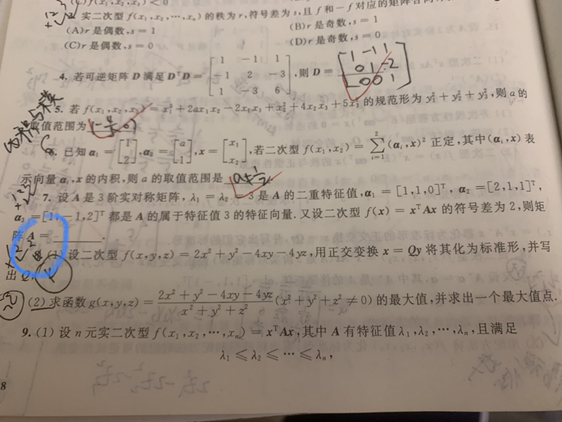 实二次型 f(x₁,x₂,⋯,xₙ) 的秩为 r,符号差为 s,且 f 和 −f 对应的矩阵合同
(A) r 是偶数,s = 1 (B) r 是奇数,s = 1
(C) r 是偶数,s = 0 (D) r 是奇数,s = 0
4. 若可逆矩阵 D 满足 DᵀD = [1 −1 1; −1 2 −3; 1 −3 6], 则 D = [1 −1 1; 0 1 −2; 0 0 1]
5. 若 f(x₁,x₂,x₃) = x₁² + 2ax₁x₂ − 2x₁x₃ + x₂² + 4x₂x₃ + 5x₃² 的规范形为 y₁² + y₂² + y₃²,则 a 的
取值范围为 (−4/5, 0)
6. 已知 α₁ = [1; 2], α₂ = [a; 1], x = [x₁; x₂], 若二次型 f(x₁,x₂) = ∑ᵢ₌₁² (αᵢ,x)² 正定,其中(αᵢ,x) 表
示向量 αᵢ,x 的内积,则 a 的取值范围是 a≠1/2
7. 设 A 是 3 阶实对称矩阵,λ₁ = λ₂ = 3 是 A 的二重特征值,α₁ = [1,1,0]ᵀ, α₂ = [2,1,1]ᵀ,
α₃ = [1,−1,2]ᵀ 都是 A 的属于特征值 3 的特征向量. 又设二次型 f(x) = xᵀAx 的符号差为 2,则矩
阵 A =
(1) 设二次型 f(x,y,z) = 2x² + y² − 4xy − 4yz,用正交变换 x = Qy 将其化为标准形,并写
出 Q
(2) 求函数 g(x,y,z) = (2x² + y² − 4xy − 4yz)/(x² + y² + z²) (x² + y² + z² ≠ 0) 的最大值,并求出一个最大值点.
9. (1) 设 n 元实二次型 f(x₁,x₂,⋯,xₙ) = xᵀAx,其中 A 有特征值 λ₁,λ₂,⋯,λₙ,且满足
λ₁ ≤ λ₂ ≤ ⋯ ≤ λₙ,
8